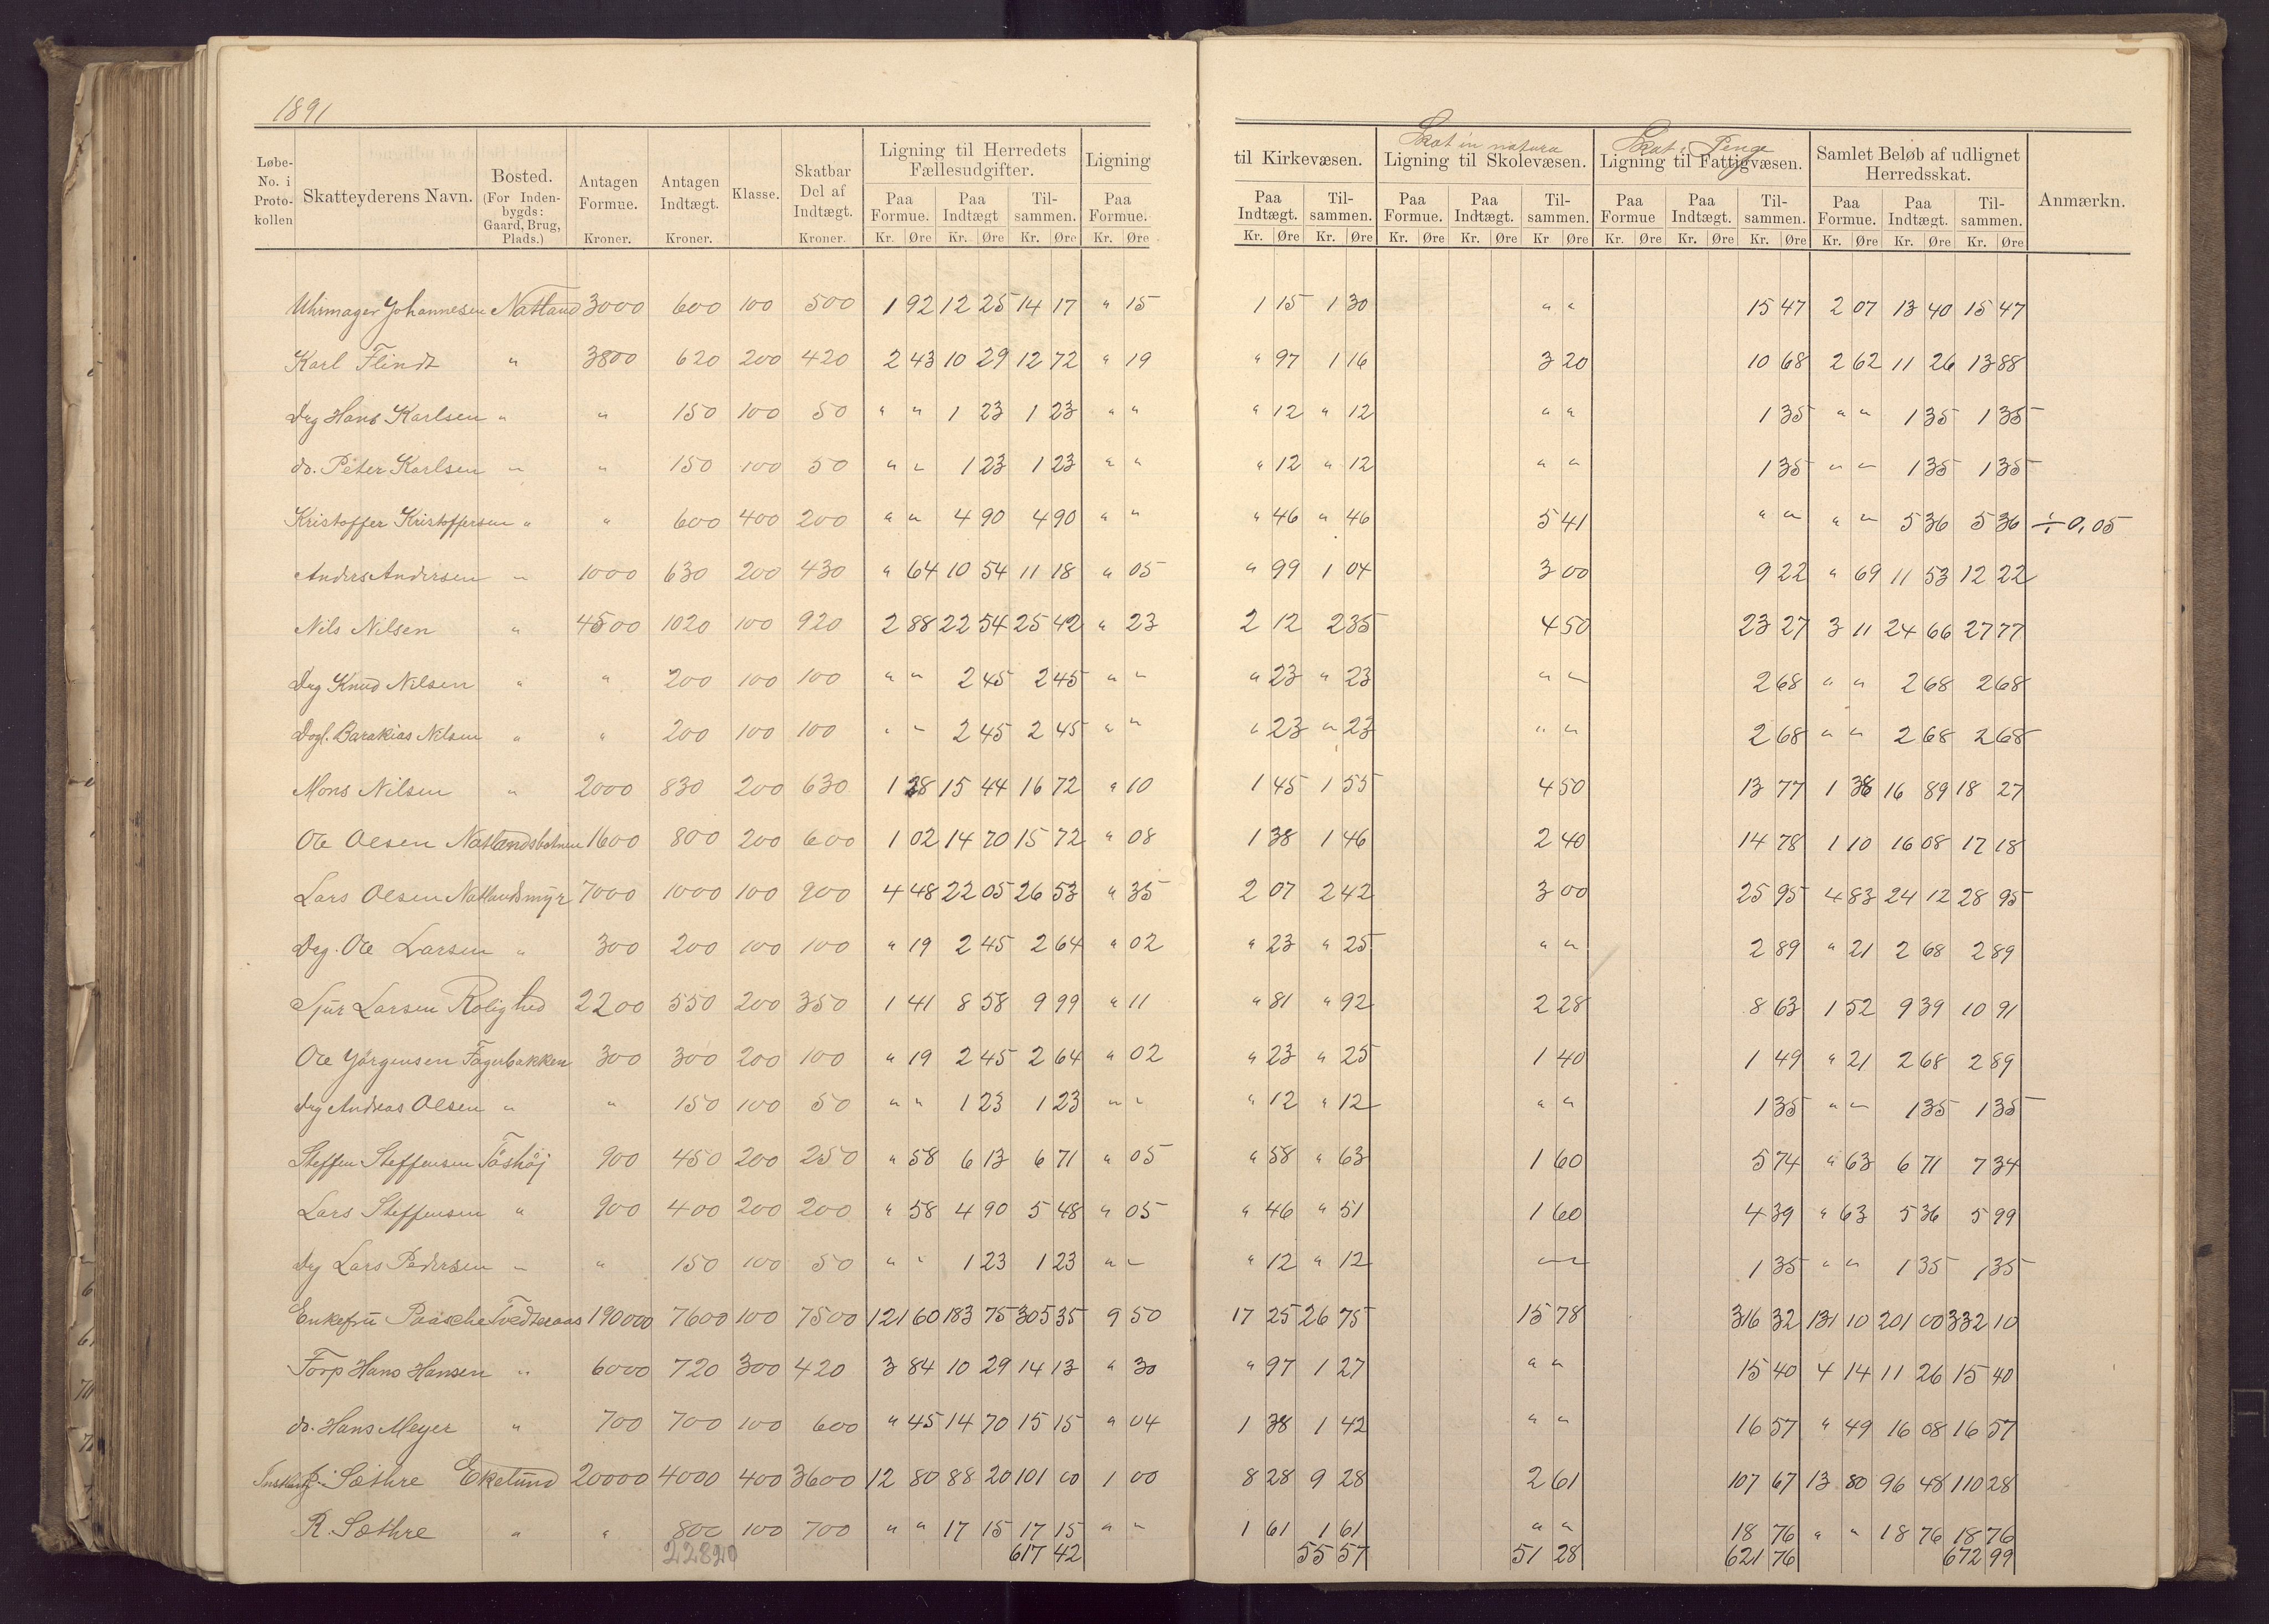 1891
Løbe-No. i Proto-kollen | Skatteyderens Navn. | Bosted. (For Inden-bygds: Gaard, Brug, Plads.) | Antagen Formue. Kroner. | Antagen Indtægt. Kroner. | Klasse. | Skatbar Del af Indtægt. Kroner. | Ligning til Herredets Fællesudgifter. Paa Formue. Kr. Øre | Paa Indtægt Kr. Øre | Til-sammen. Kr. Øre | Ligning Paa Formue. Kr. Øre | til Kirkevæsen. Paa Indtægt. Kr. Øre | Til-sammen. Kr. Øre | Skat in natura Ligning til Skolevæsen. Paa Formue. Kr. Øre | Paa Indtægt. Kr. Øre | Til-sammen. Kr Øre | Skat i Penge Ligning til Fattigvæsen. Paa Formue Kr. Øre | Paa Indtægt. Kr. Øre | Til-sammen. Kr. Øre | Samlet Beløb af udlignet Herredsskat. Paa Formue. Kr. Øre | Paa Indtægt. Kr. Øre | Til-sammen. Kr. Øre | Anmærkn.
Uhrmager Johannesen Natland 3000 600 100 500 1 92 12 25 14 17 " 15 1 15 1 30 " " 15 47 2 07 13 40 15 47
Karl Flindt " 3800 620 200 420 2 43 10 29 12 72 " 19 " 97 1 16 3 20 10 68 2 62 11 26 13 88
Drg Hans Karlsen " " 150 100 50 " " 1 23 1 23 " " " 12 " 12 " " 1 35 " " 1 35 1 35
do. Peter Karlsen " " 150 100 50 " " 1 23 1 23 " " " 12 " 12 " " 1 35 " " 1 35 1 35
Kristoffer Kristoffersen " " 600 400 200 " " 4 90 4 90 " " " 46 " 46 5 41 " " " " 5 36 5 36 ÷ 0,05
Anders Andersen " 1000 630 200 430 " 64 10 54 11 18 " 05 " 99 1 04 3 00 9 22 " 69 11 53 12 22
Nils Nilsen " 4500 1020 100 920 2 88 22 54 25 42 " 23 2 12 2 35 4 50 23 27 3 11 24 66 27 77
Drg Knud Nilsen " " 200 100 100 " " 2 45 2 45 " " " 23 " 23 " " 2 68 " " 2 68 2 68
Dagl. Barakias Nilsen " " 200 100 100 " " 2 45 2 45 " " " 23 " 23 " " 2 68 " " 2 68 2 68
Mons Nilsen " 2000 830 200 630 1 28 15 44 16 72 " 10 1 45 1 55 4 50 13 77 1 38 16 89 18 27
Ole Olsen Natlandsbotnen 1600 800 200 600 1 02 14 70 15 72 " 08 1 38 1 46 2 40 14 78 1 10 16 08 17 18
Lars Olsen Natlandsmyr 7000 1000 100 900 4 48 22 05 26 53 " 35 2 07 2 42 3 00 25 95 4 83 24 12 28 95
Drg. Ole Larsen " 300 200 100 100 " 19 2 45 2 64 " 02 " 23 " 25 " " 2 89 " 21 2 68 2 89
Sjur Larsen Rolighed 2200 550 200 350 1 41 8 58 9 99 " 11 " 81 " 92 2 28 8 63 1 52 9 39 10 91
Ole Jörgensen Fagerbakken 300 300 200 100 " 19 2 45 2 64 " 02 " 23 " 25 1 40 1 49 " 21 2 68 2 89
Drg Andreas Olsen " " 150 100 50 " " 1 23 1 23 " " " 12 " 12 " " 1 35 " " 1 35 1 35
Steffen Steffensen 900 450 200 250 " 58 6 13 6 71 " 05 " 58 " 63 1 60 5 74 " 63 6 71 7 34
Lars Steffensen " 900 400 200 200 " 58 4 90 5 48 " 05 " 46 " 51 1 60 4 39 " 63 5 36 5 99
Drg Lars Pedersen " " 150 100 50 " " 1 23 1 23 " " " 12 " 12 " " 1 35 " " 1 35 1 35
Enkefru Paasche Tvedteraas 190000 7600 100 7500 121 60 183 75 305 35 9 50 17 25 26 75 15 78 316 32 131 10 201 00 332 10
Forp Hans Hansen " 6000 720 300 420 3 84 10 29 14 13 " 30 " 97 1 27 " " 15 40 4 14 11 26 15 40
do. Hans Meyer " 700 700 100 600 " 45 14 70 15 15 " 04 1 38 1 42 " " 16 57 " 49 16 08 16 57
Sæthre Ekelund 20000 4000 400 3600 12 80 88 20 101 00 1 00 8 28 9 28 2 61 107 67 13 80 96 48 110 28
R. Sæthre " " 800 100 700 " " 17 15 17 15 " " 1 61 1 61 " " 18 76 " " 18 76 18 76
617 42 55 57 51 28 621 76 672 99